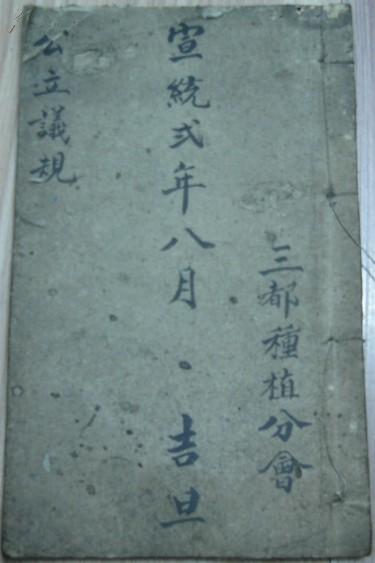 三都種植分會
宣統弍年八月·吉旦
公立議規